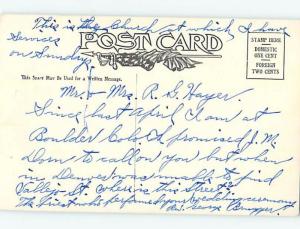 This is the Church at which I have
Services
on Sunday
POST CARD
This Space May Be Used for a Written Message.
STAMP HERE
DOMESTIC
ONE CENT
FOREIGN
TWO CENTS
Mr. & Mrs. R. G. Hayer
Since last April I am at
Boulder Colo. I promised J. M.
Dorn to call on you but when
in Denver was unable to find
Vallejo St. where is this Street?
The first who performed your wedding ceremony